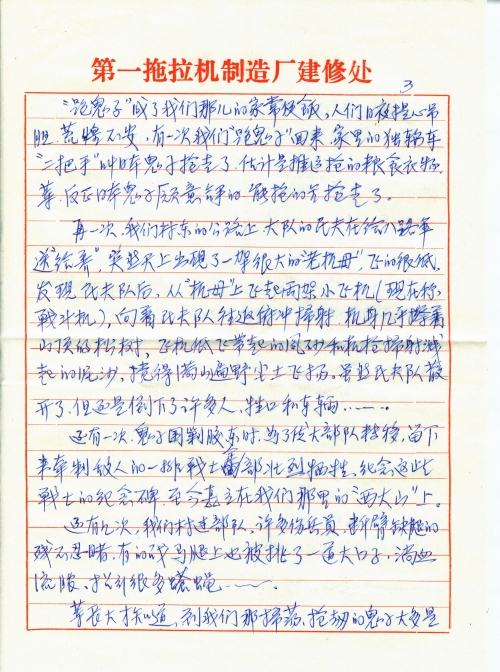 第一拖拉机制造厂建修处
3
“跑鬼子”成了我们那儿的家常便饭,人们日夜提心吊
胆,荒恍不安,有一次我们“跑鬼子”回来,家里的独轮车
“二把手”叫日本鬼子抢走了,估计是推运抢的粮食衣物
等,反正日本鬼子
抢走了。
再一次,我们村东的公路上,大队的民夫在给八路军
送“给养”,突然天上出现了一架很大的“老机母”,飞的很低,
发现民夫队后,从“机母”上飞起两架小飞机(现在称
战斗机),向着民夫队往返俯冲掃射,机身几乎擦着
山顶的松树,飞机低飞带起的风砂和机枪掃射溅
起的泥沙,搅得满山遍野尘土飞扬。虽然民夫队散
开了,但还是倒下了许多人、牲口和车辆……。
还有一次,鬼子围剿胶东时,为了使大部队转移,留下
来牵制敌人的一排战士全部壮烈牺牲,纪念这些
战士的纪念碑,至今矗立在我们那里的“西大山”上。
还有几次,我们村进部队,许多伤兵员,断臂缺腿的
残不忍睹,有的战马腿上也被挑了一道大口子,淌血
流脓,招引很多蟠蝇……。
等长大才知道,到我们那掃荡、抢劫的鬼子大多是